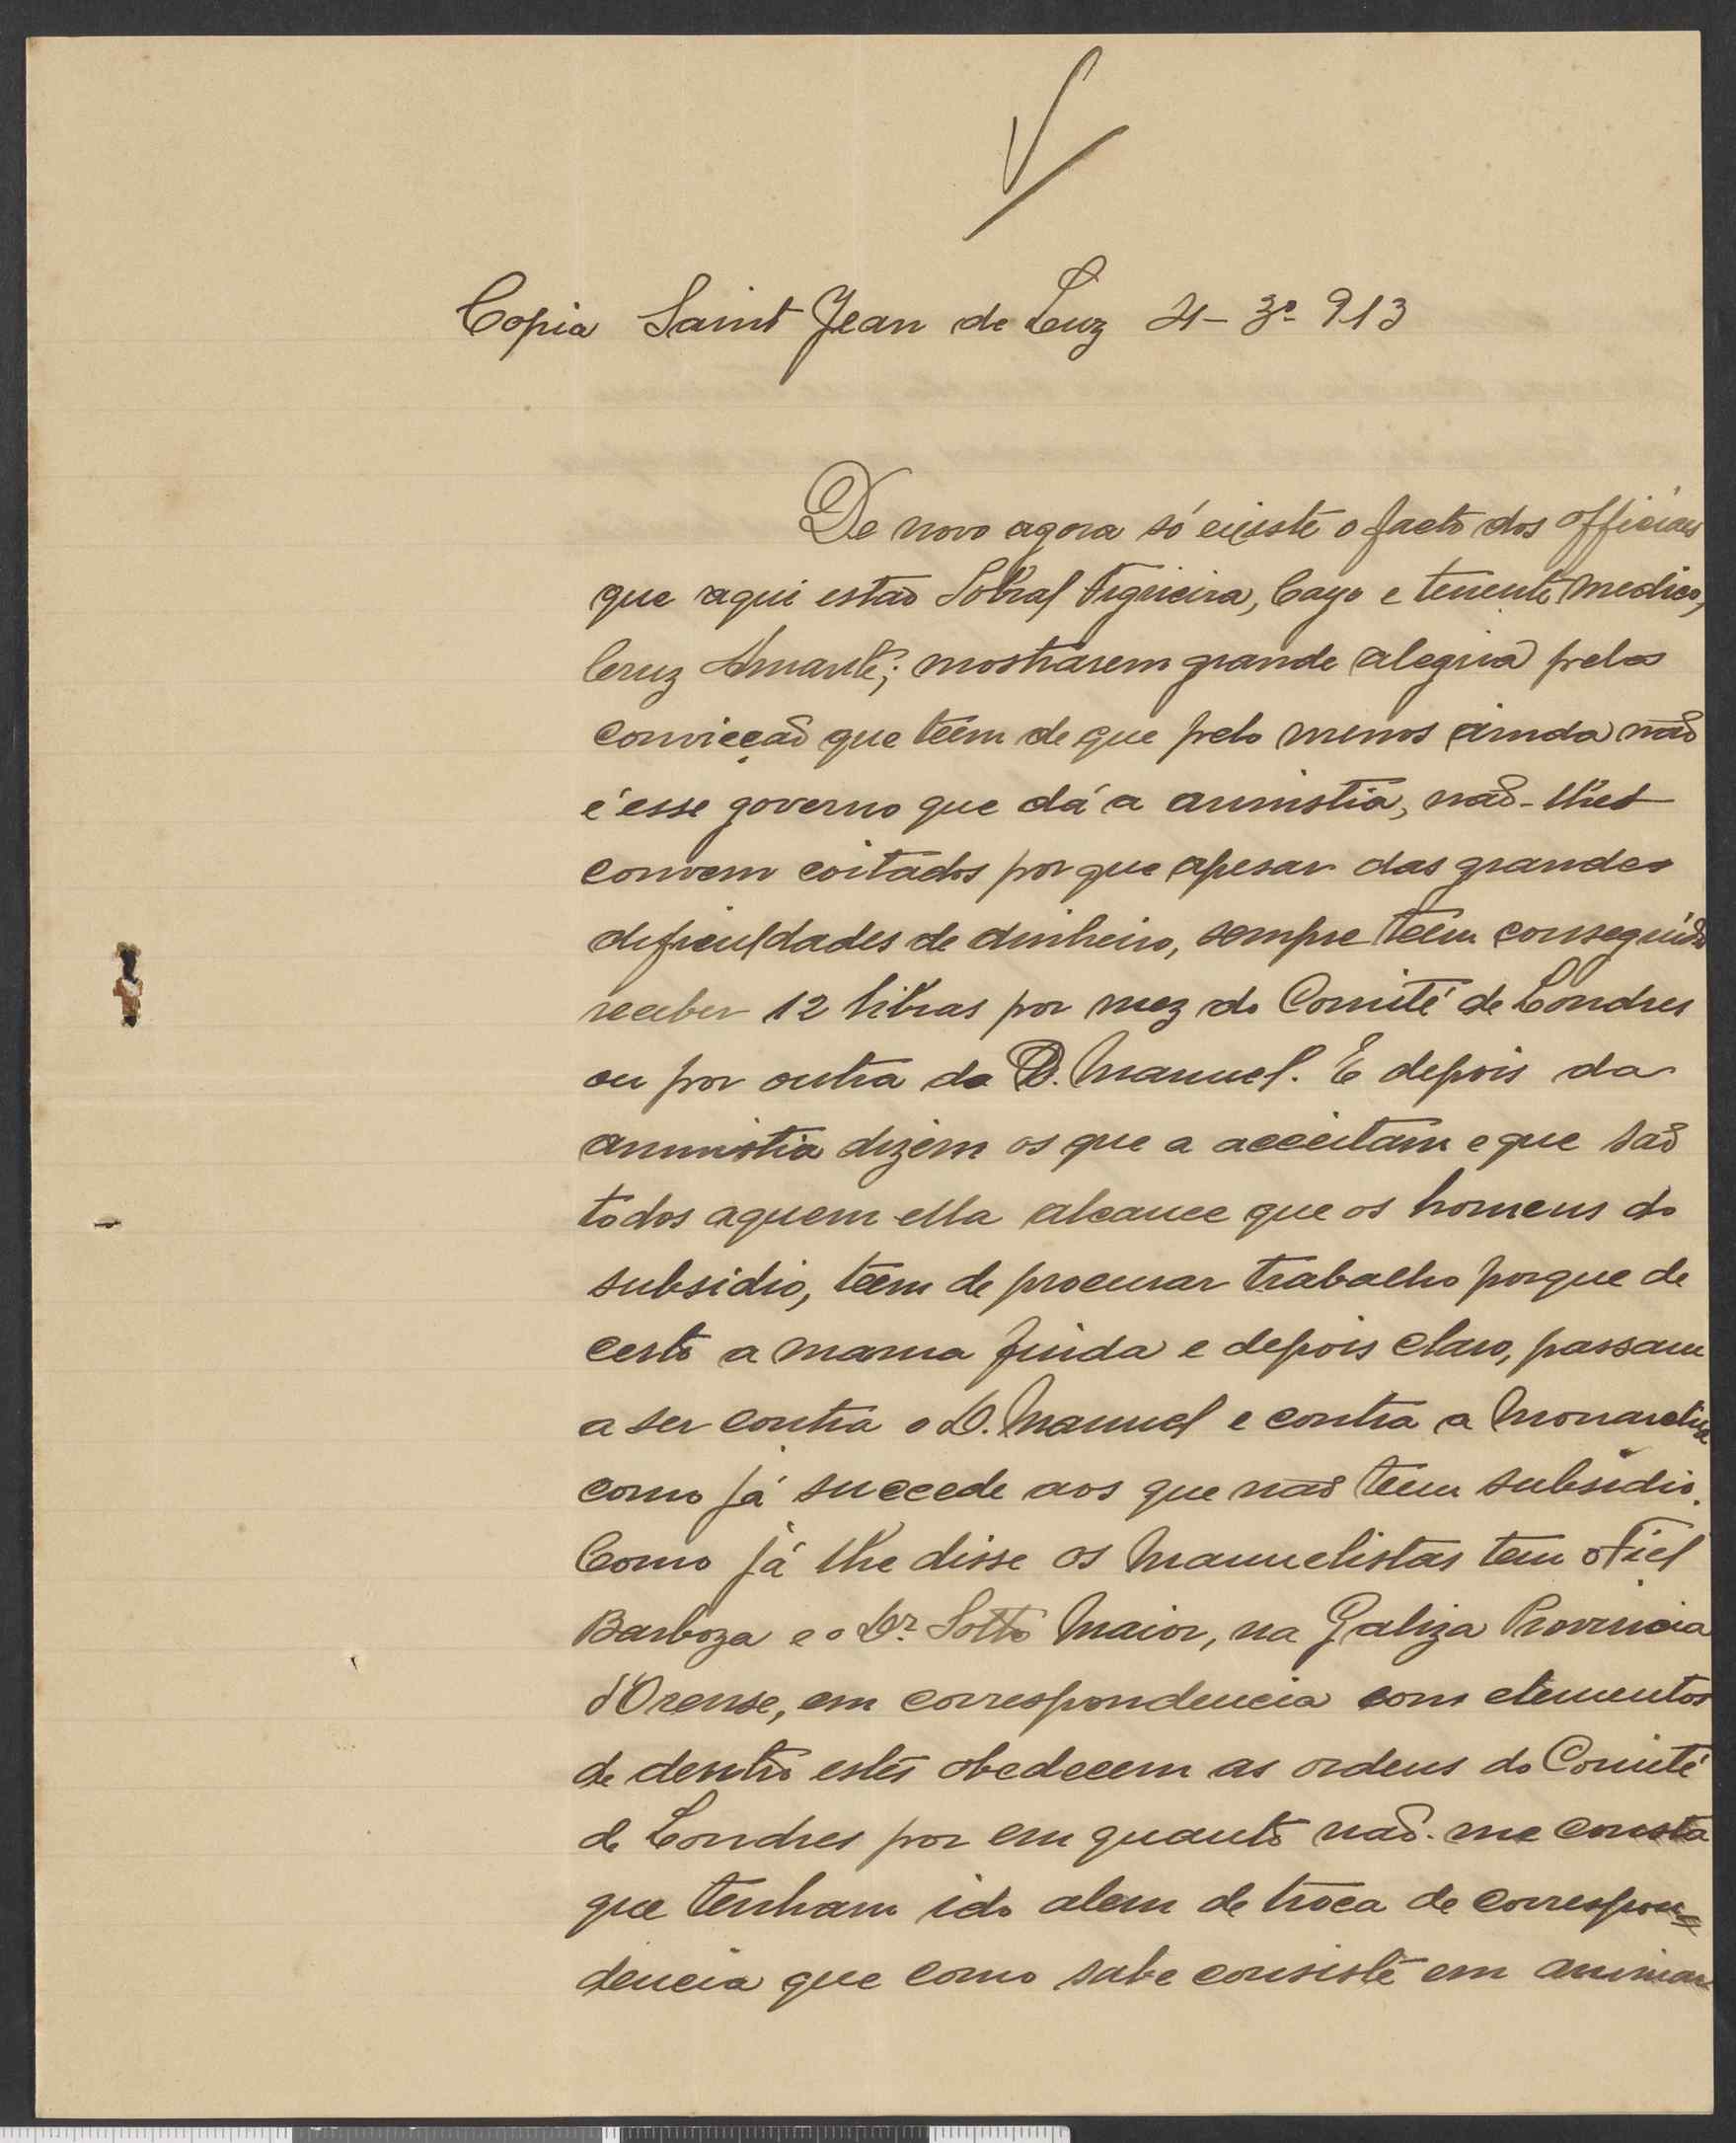 Copia Saint Jean de Luz 4-3º-913
De novo agora só existe o facto dos officiaes
que aqui estão Sobral Figueira, Cayo e tenente Medico,
Cruz Amante; mostrarem grande alegria pela
convicção que teem de que pelo menos ainda não
é esse governo que dá a amnistia, não-lhes
convem coitados por que apesar das grandes
dificuldades de dinheiro, sempre teem conseguido
receber 12 libras por mez do Comité de Londres
ou por outra do D. Manuel. E depois da
amnistia dizem os que a acceitam e que são
todos aquem ella alcance que os homens do
subsidio, teem de procurar trabalho porque de
certo a mama finda e depois claro, passam
a ser contra o D. Manuel e contra a Monarchia
como já succede aos que não teem subsidio.
Como já lhe disse os Manuelistas tem o Fiel
Barboza e o Dr. Sotto Maior, na Galiza Provincia
d'Orense, em correspondencia com elementos
de dentro estes obedecem as ordens do Comité
de Londres por em quanto não-me consta
que tenham ido alem de troca de correspon=
dencia que como sabe consiste em animar